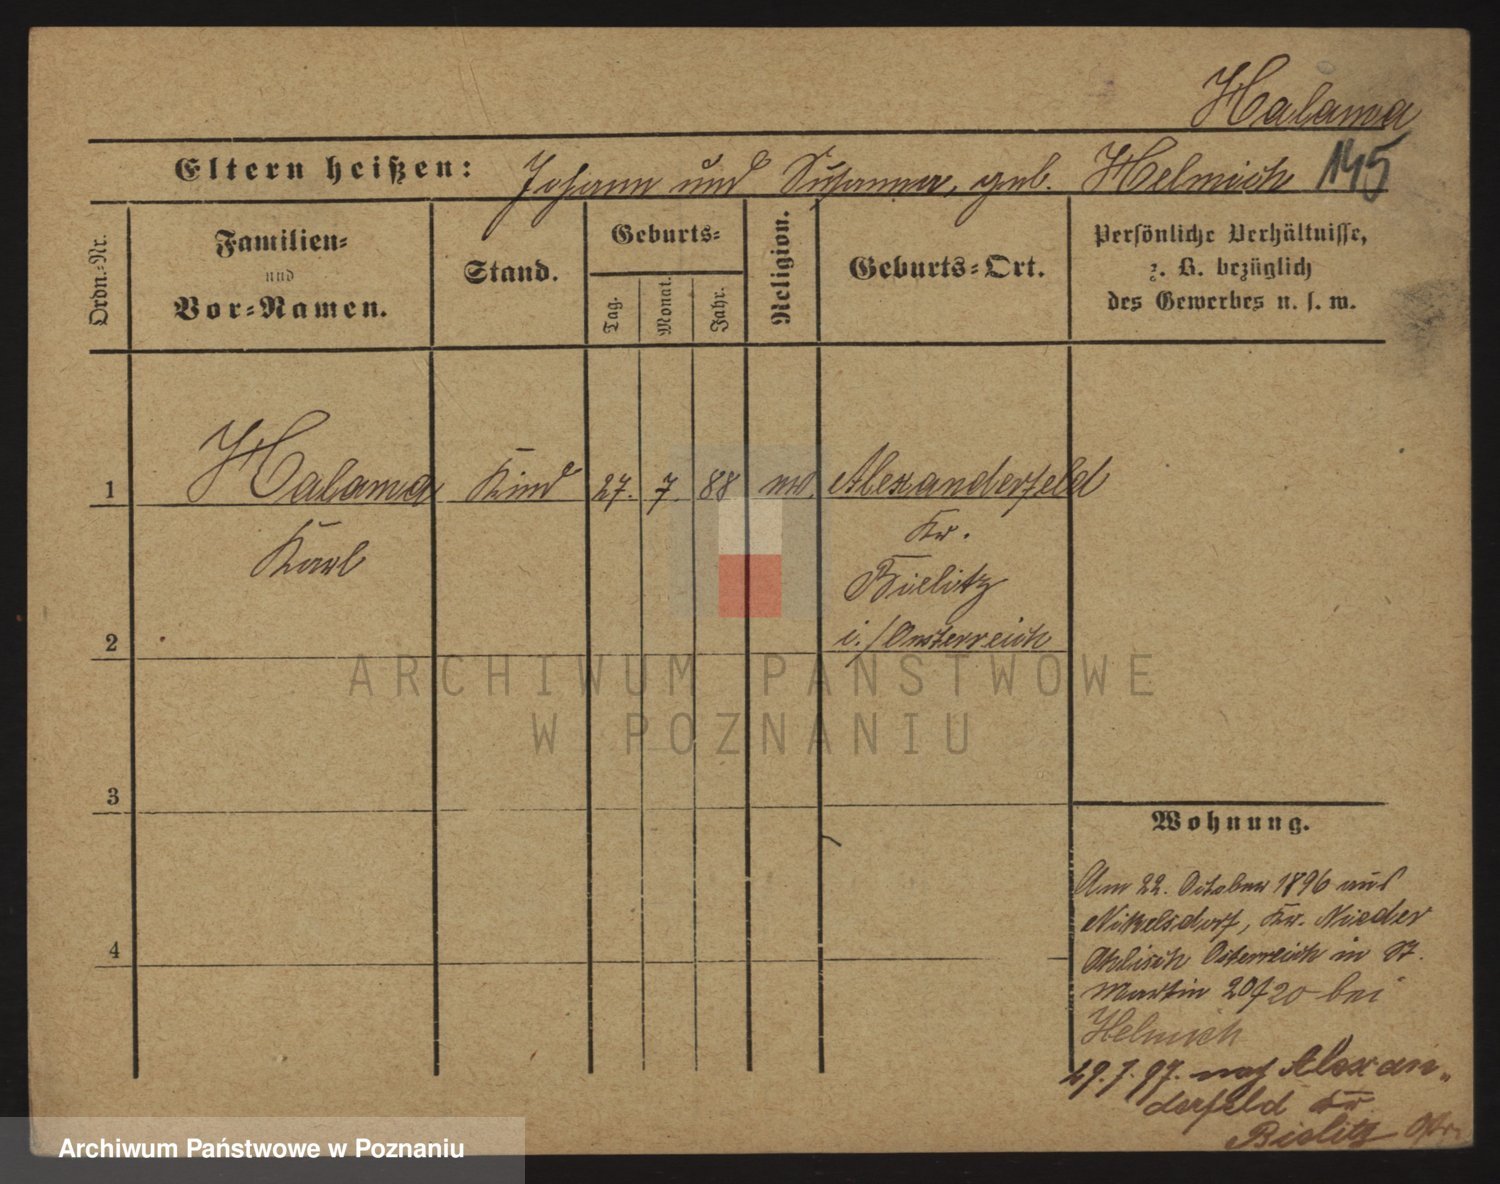 Halama
Eltern heißen: Johann und Susanna, geb. Helmich 145
Ordn.-Nr.
Familien-
und
Vor-Namen.
Stand.
Geburts-
Tag.
Monat.
Jahr.
Religion.
Geburts-Ort.
Persönliche Verhältnisse,
z. B. bezüglich
des Gewerbes u. s. w.
1 Halama Kind 27. 7. 88 ev. Alexanderfeld
Karl Kr.
Bielitz
2 i./Oesterreich
ARCHIWUM PAŃSTWOWE
W POZNANIU
3
Wohnung.
Am 22. October 1896 aus
Nikelsdorf, Kr. Nieder
Oesterreich in St.
4
Martin 20/20 bei
Helmich
29.7.97. nach Alexan-
derfeld Kr
Bielitz Östr.
Archiwum Państwowe w Poznaniu